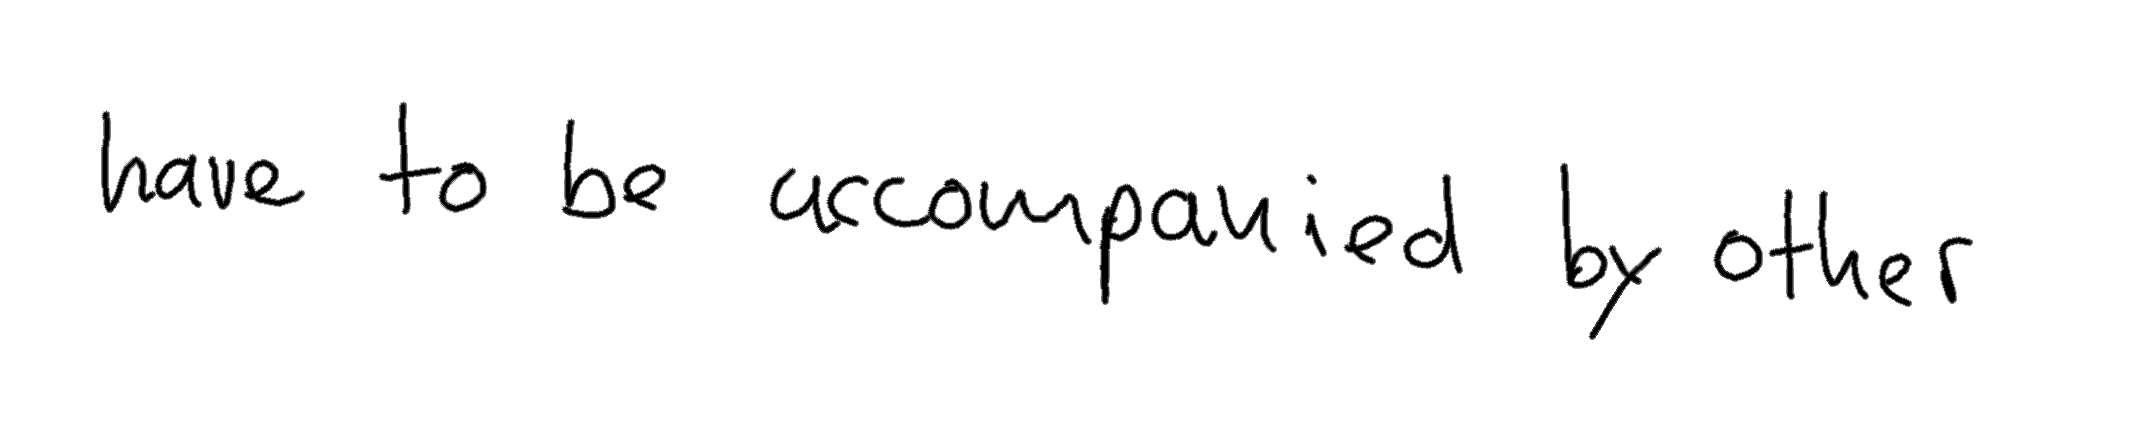 have to be accompanied by other